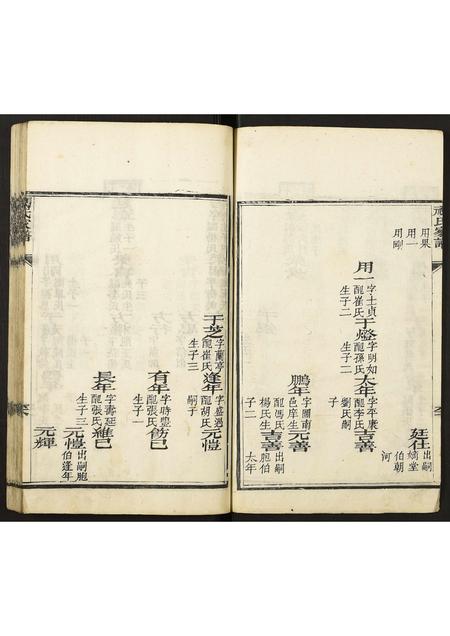 氏家譜
廷仕
出嗣
嫡堂
伯朝
河
用果
用一
用剛
用一
字士貞
配崔氏
生子二
于燈
字明如
配孫氏
生子二
太年
字平康
配李氏
劉氏嗣
子
吉善
鵬年
字圖南
邑庠生
配馮氏
楊氏生
子二
元善
吉善
出嗣
胞伯
太年
于芝
字蘭亭
配崔氏
生子三
逢年
字盛遇
配胡氏
嗣子
元愷
有年
字時豊
配張氏
生子一
飭己
長年
字壽延
配張氏
生子三
維己
元愷
出嗣胞
伯逢年
元輝